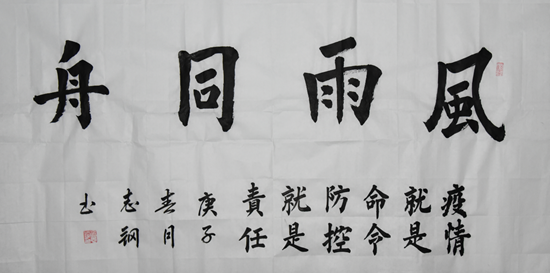 風雨同舟
疫情
就是
命令
防控
就是
責任
庚子
春月
志鋼
书